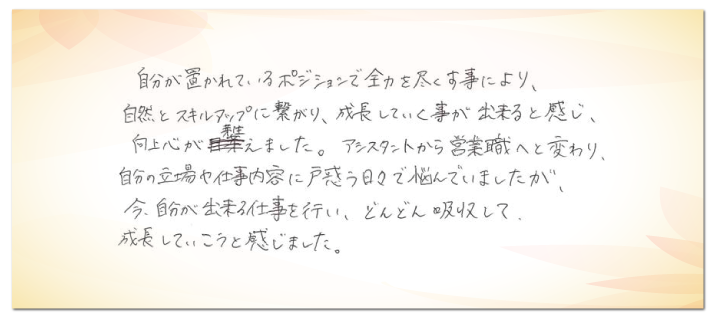 自分が置かれているポジションで全力を尽くす事により、
自然とスキルアップに繋がり、成長していく事が出来ると感じ、
向上心が芽生えました。アシスタントから営業職へと変わり、
自分の立場や仕事内容に戸惑う日々で悩んでいましたが、
今、自分が出来る仕事を行い、どんどん吸収して、
成長していこうと感じました。